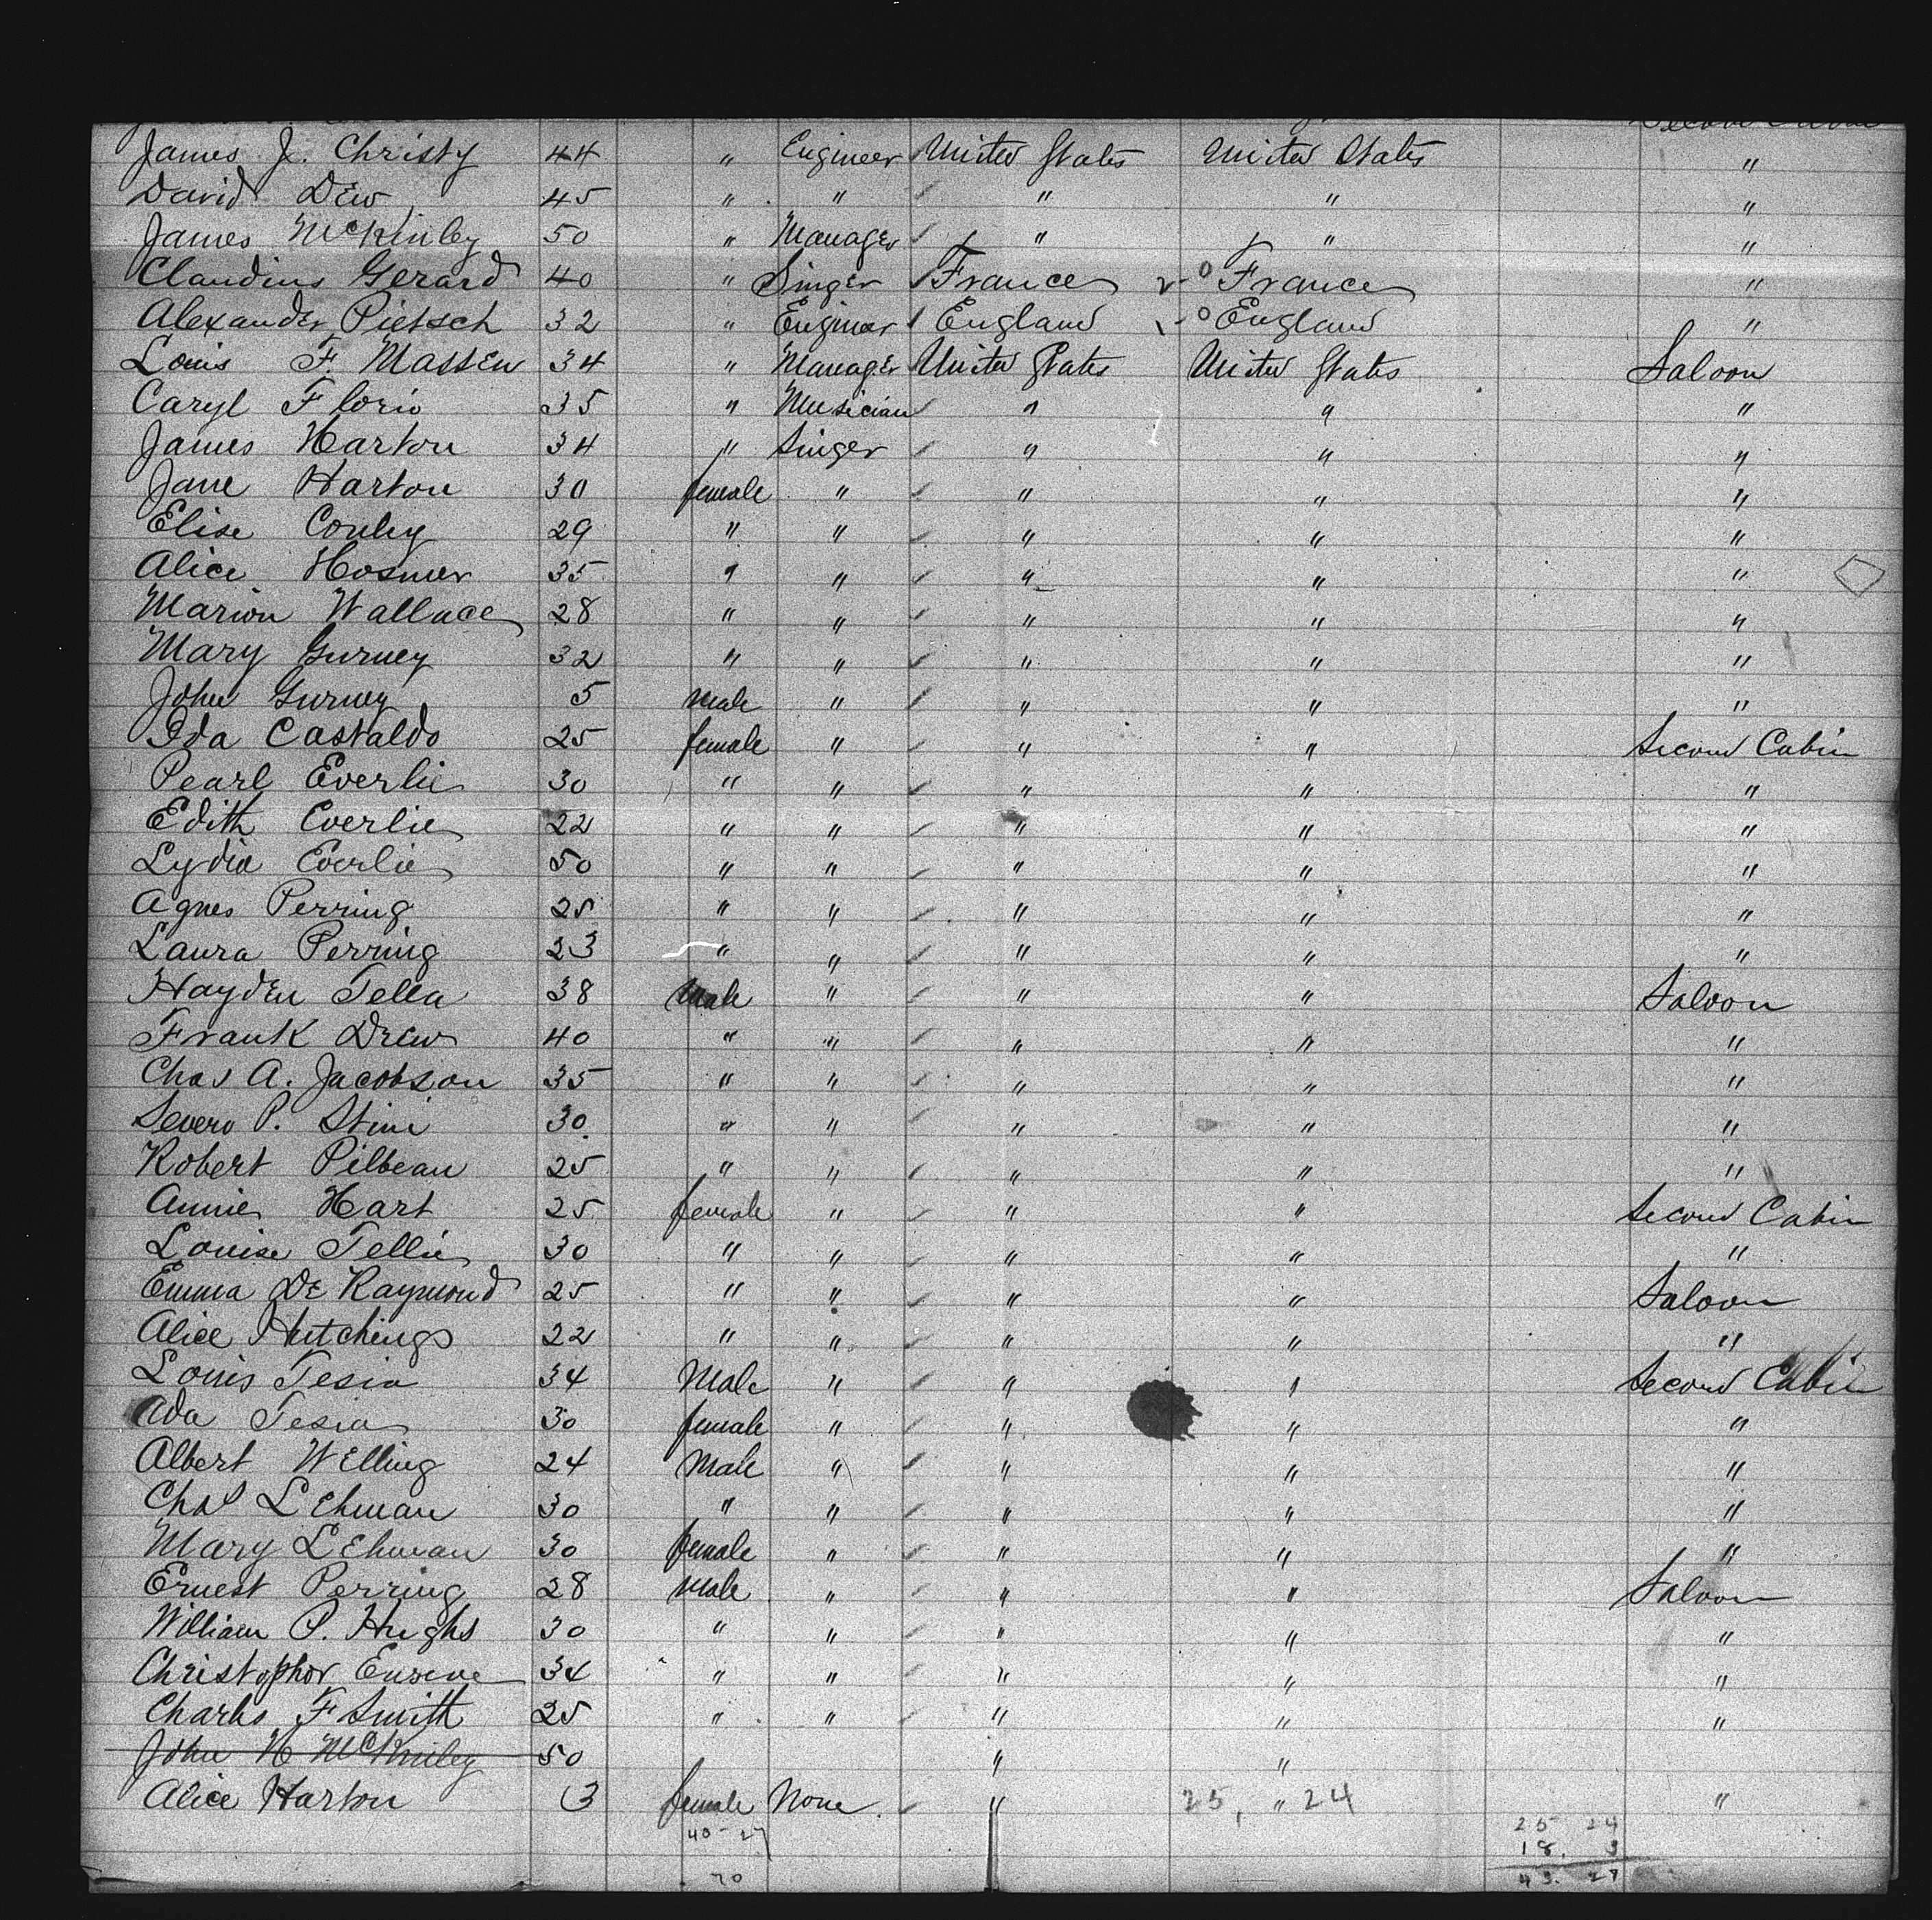 James J. Christy 44 " Engineer United States United States "
David Dew 45 " " " " "
James McKinley 50 " Manager " " "
Claudius Gerard 40 " Singer France France "
Alexander Pietsch 32 " Engineer England England "
Louis F. Massen 34 " Manager United States United States Saloon
Caryl Florio 35 " Musician " " "
James Harton 34 " Singer " " "
Jane Harton 30 female " " " "
Elise Conley 29 " " " " "
Alice Hosmer 35 " " " " "
Marion Wallace 28 " " " " "
Mary Gurney 32 " " " " "
John Gurney 5 male " " " "
Ida Castaldo 25 female " " " Second Cabin
Pearl Everlie 30 " " " " "
Edith Everlie 22 " " " " "
Lydia Everlie 50 " " " " "
Agnes Perring 25 " " " " "
Laura Perring 23 " " " " "
Hayden Tella 38 male " " " Saloon
Frank Drew 40 " " " " "
Chas A. Jacobson 35 " " " " "
Severo P. Stini 30 " " " " "
Robert Pilbeau 25 " " " " "
Annie Hart 25 female " " " Second Cabin
Louise Tellie 30 " " " " "
Emma De Raymond 25 " " " " Saloon
Alice Hutchings 22 " " " " "
Louis Tesia 34 Male " " " Second Cabin
Ada Tesia 30 female " " " "
Albert Welling 24 Male " " " "
Chas Lehman 30 " " " " "
Mary Lehman 30 female " " " "
Ernest Perring 28 male " " " Saloon
William P. Hughs 30 " " " " "
Christopher 34 " " " " "
Charles F Smith 25 " " " " "
John H McKinley 50 " "
Alice Harton 3 female None " 25, " 24 "
40 - 27 25 24
18. 3
70 43. 27